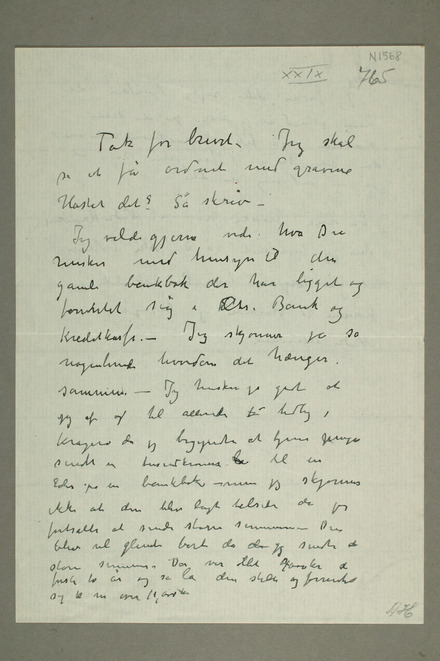 N1568
XXIX
765
Tak for brevet – Jeg skal
se at få ordnet med gravene
Haster det? Så skriv –
Jeg vilde gjerne vide hva De
ønsker med hensyn til den
gamle bankbok der har ligget og
forrentet sig i Chr. Bank og
Kreditkasse. – Jeg skjønner jo så
nogenlunde hvordan det hænger
sammen – Jeg husker jo godt at
jeg af og til allerede tidlig i
Kragerø da jeg begynte at tjene penge
sendte en
en bankbok – men jeg skjønner
ikke at den blev lagt da jeg
fortsatte at sende større summer – Den
blev vel glemt bort da jeg sendte de
store summer – Der var det de
første to år og så lå den stille og forrentet
sig